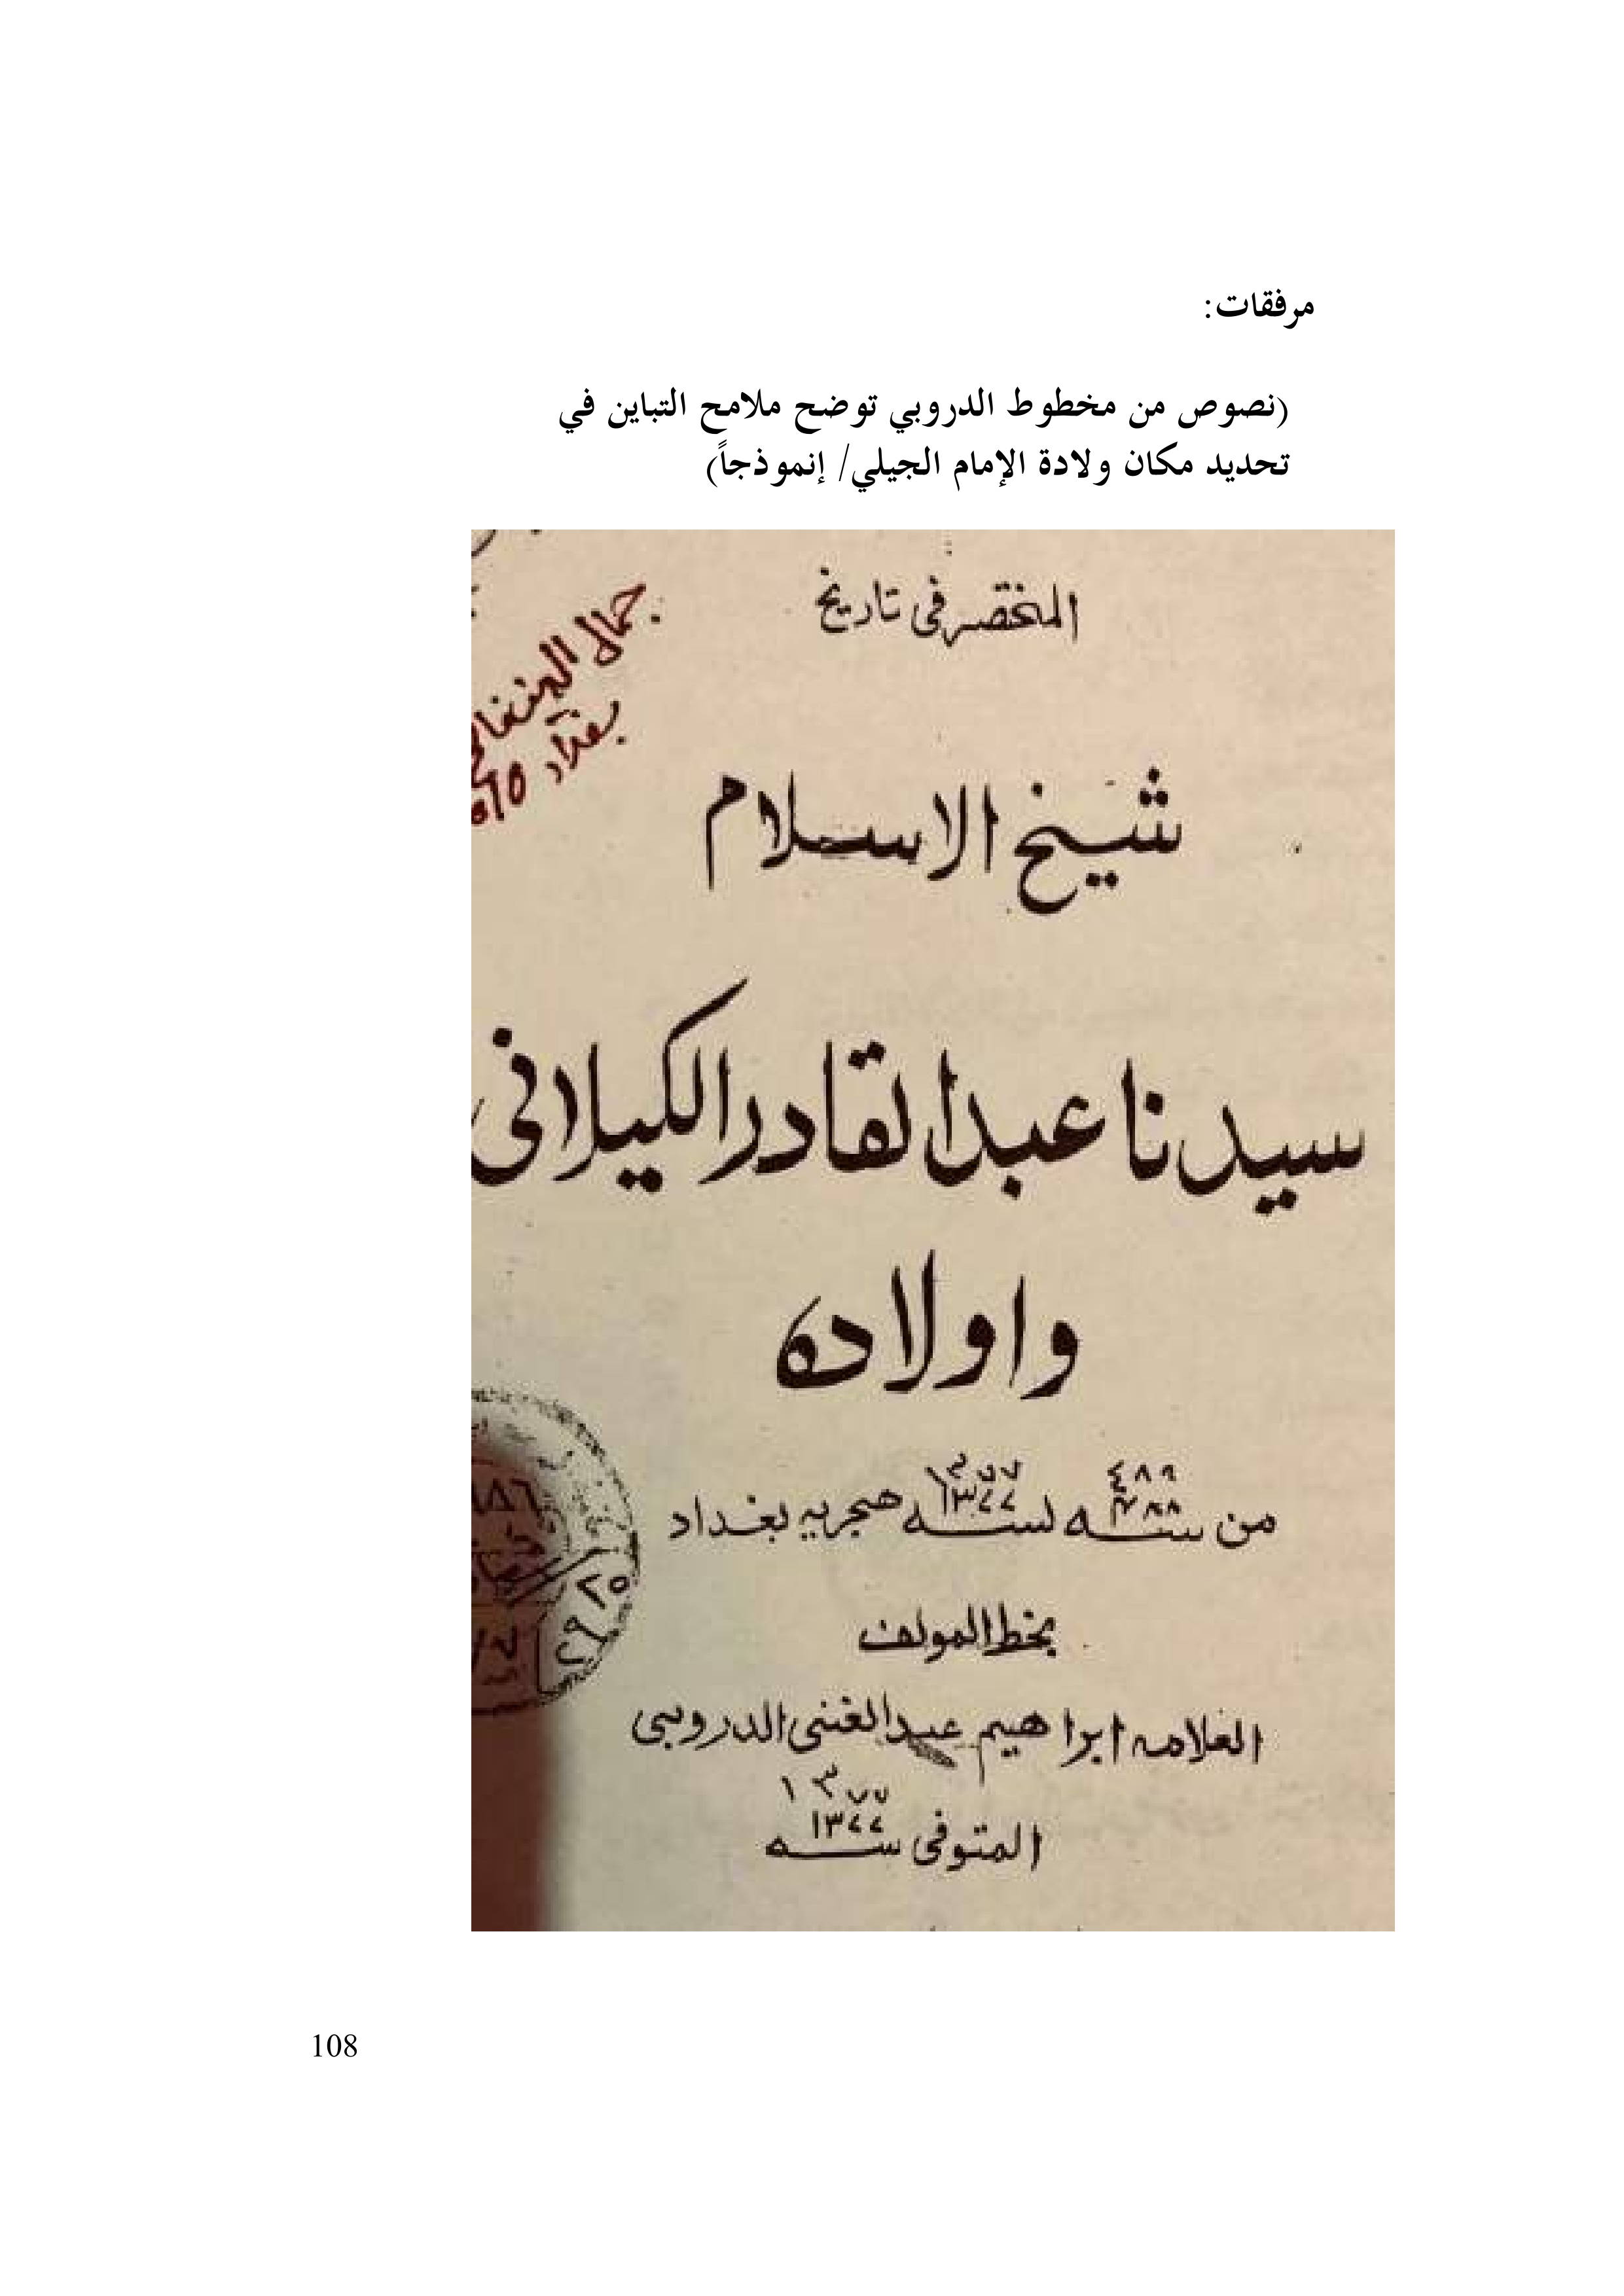 مرفقات:
(نصوص من مخطوط الدروبي توضح ملامح التباين في
تحديد مكان ولادة الإمام الجيلي/ إنموذجاً)
المختصر في تاريخ
جمال الدين
بغداد
شيخ الاسلام
سيدنا عبدالقادر الكيلاني
واولاده
٤٨٩ ١٣٧٧
من سنه لسنه هجريه بغداد
بخط المولف
العلامه ابراهيم عبدالغني الدروبي
١٣٧٧
المتوفى سنه
108